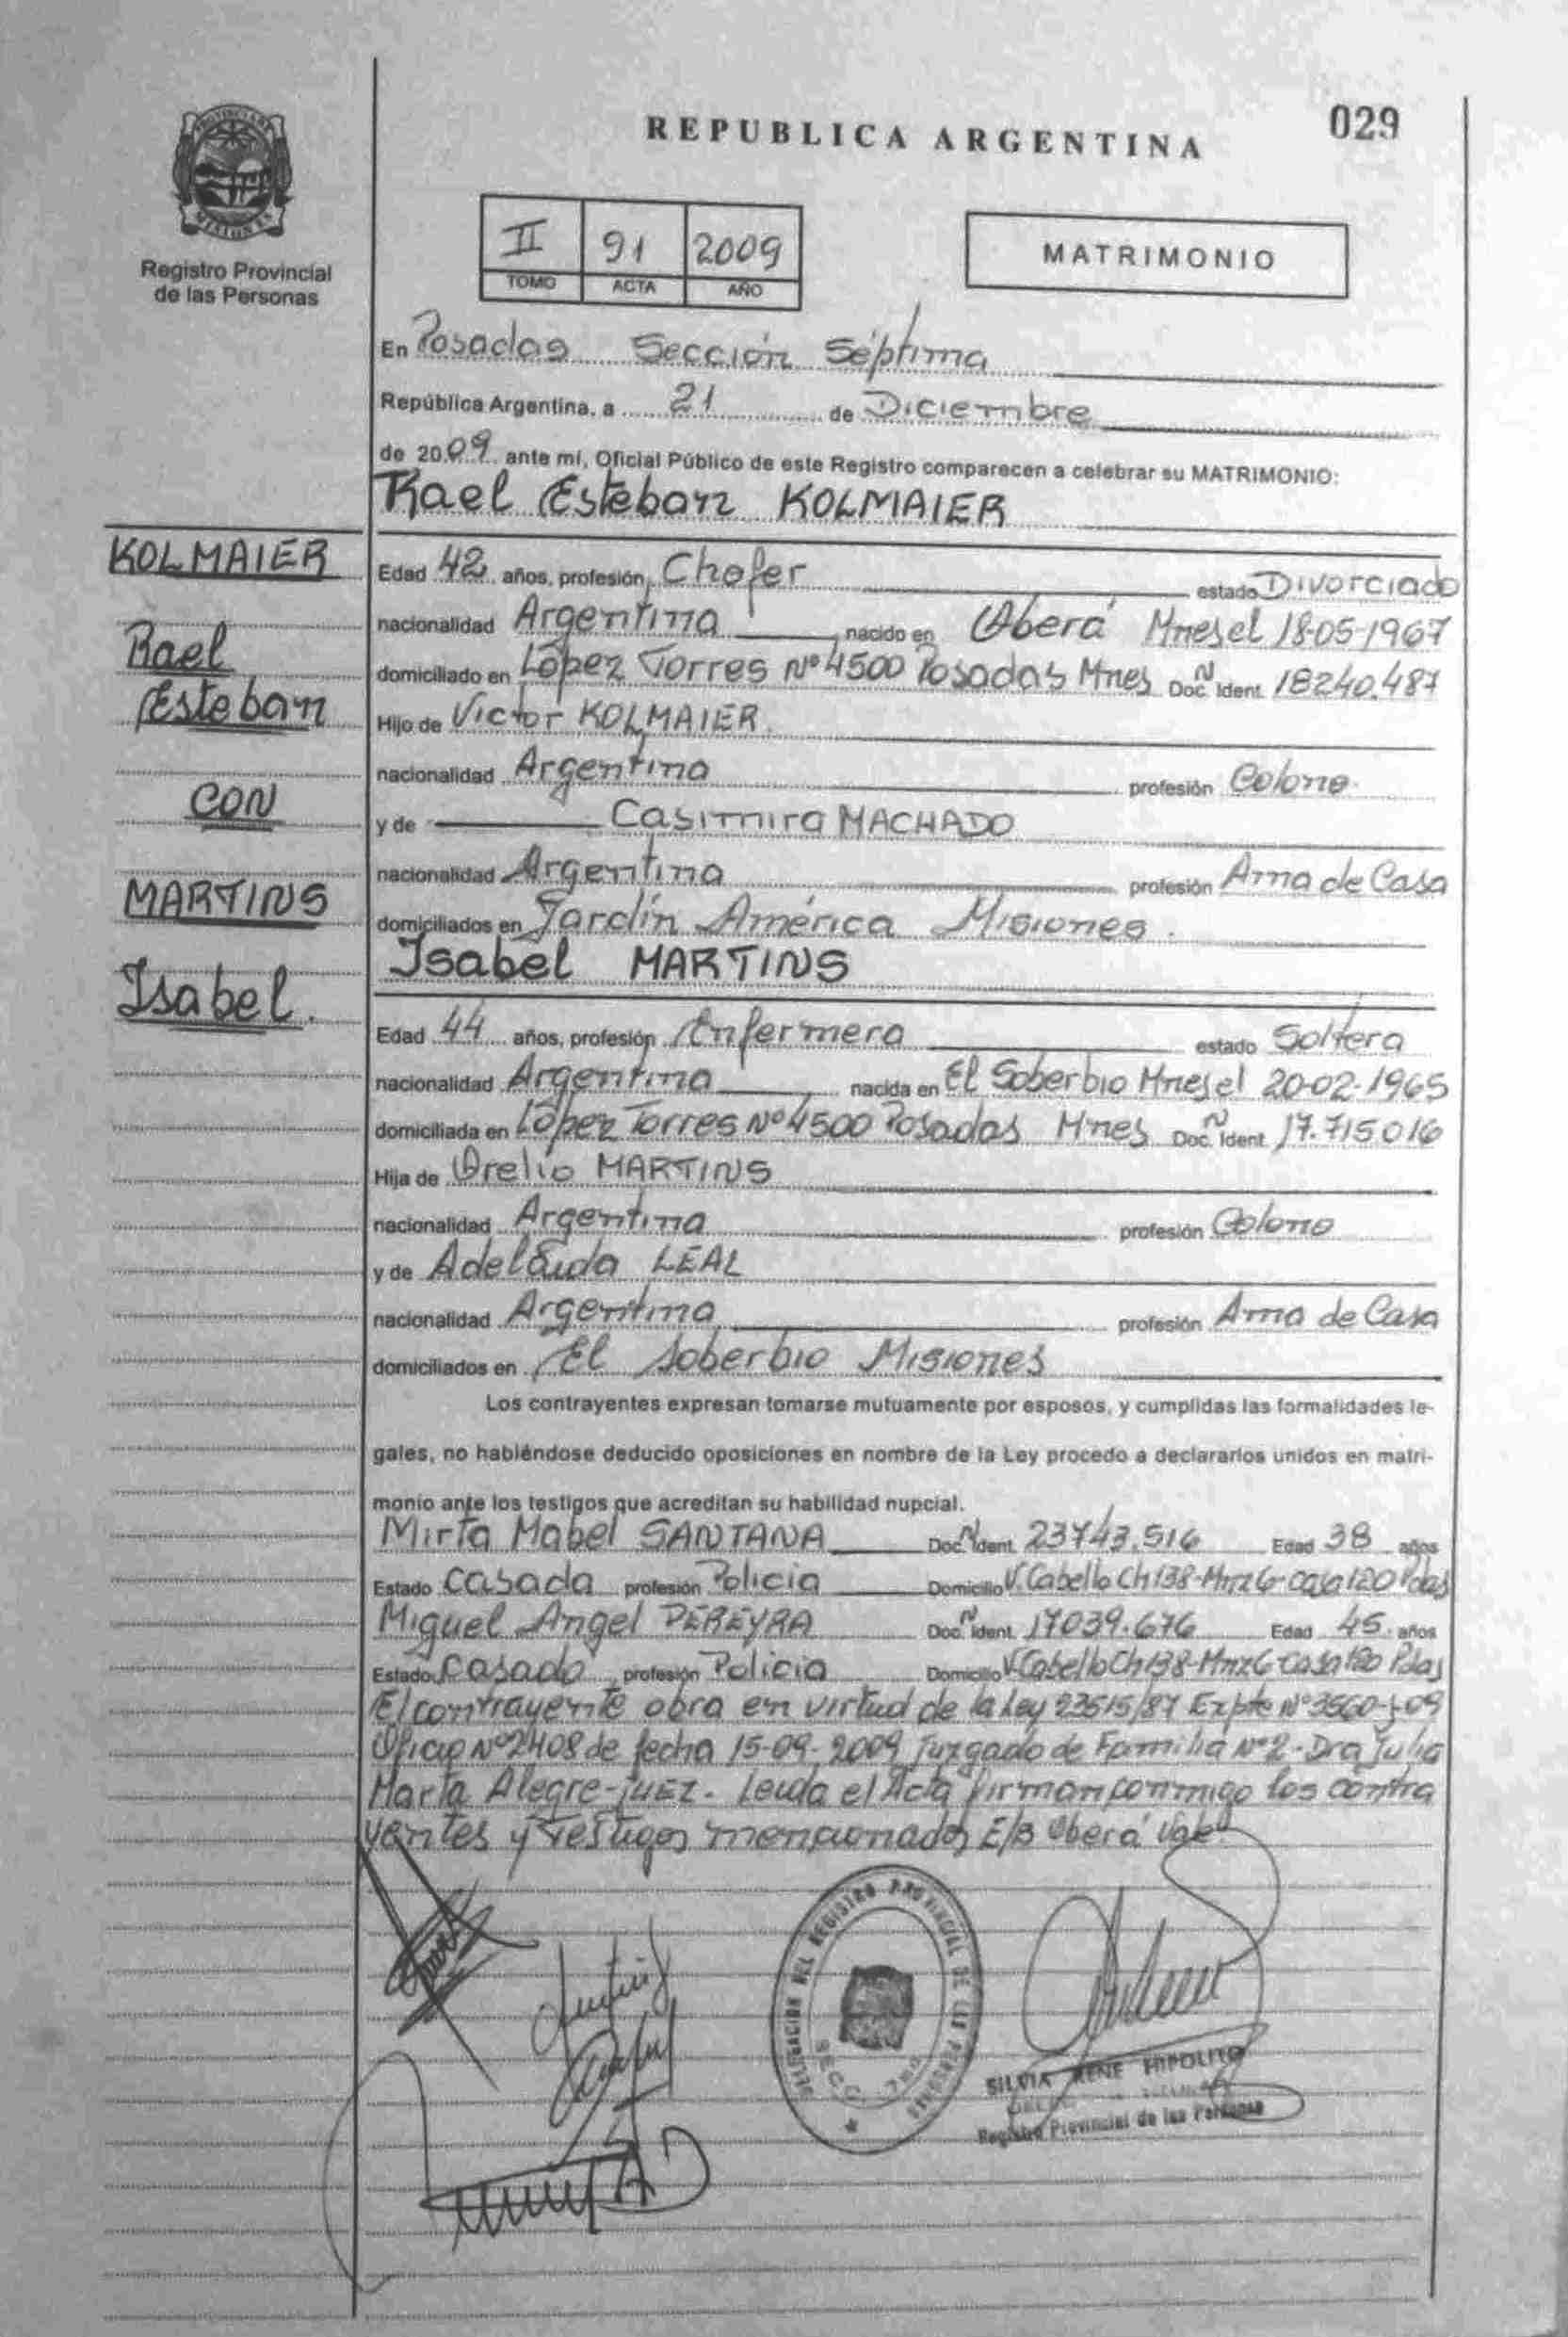 029
REPUBLICA ARGENTINA
PROVINCIA DE
MISIONES
Registro Provincial
de las Personas
II 91 2009
TOMO ACTA AÑO
MATRIMONIO
En Posadas Sección Séptima
República Argentina, a 21 de Diciembre
de 2009 ante mí, Oficial Público de este Registro comparecen a celebrar su MATRIMONIO:
Rael Esteban KOLMAIER
KOLMAIER
Rael
Esteban
CON
MARTINS
Isabel.
Edad 42 años, profesión, Chofer estado Divorciado
nacionalidad Argentina nacido en Oberá Mnes el 18-05-1967
domiciliado en López Torres Nº 4500 Posadas Mnes Doc. N Ident. 18240.487
Hijo de Victor KOLMAIER
nacionalidad Argentina profesión Colono
y de Casimira MACHADO
nacionalidad Argentina profesión Ama de Casa
domiciliados en Jardín América Misiones.
Isabel MARTINS
Edad 44 años, profesión Enfermera estado Soltera
nacionalidad Argentina nacida en El Soberbio Mnes el 20-02-1965
domiciliada en López Torres Nº 4500 Posadas Mnes Doc. N Ident. 17.715016
Hija de Orelio MARTINS
nacionalidad Argentina profesión Colono
y de Adelaida LEAL
nacionalidad Argentina profesión Ama de Casa
domiciliados en El Soberbio Misiones
Los contrayentes expresan tomarse mutuamente por esposos, y cumplidas las formalidades le-
gales, no habiéndose deducido oposiciones en nombre de la Ley procedo a declararlos unidos en matri-
monio ante los testigos que acreditan su habilidad nupcial.
Mirta Mabel SANTANA Doc. N Ident. 23743.516 Edad 38 años
Estado Casada profesión Policia Domicilio V. Cabello Ch138-Mnz6-casa120 Pdas
Miguel Angel PEREYRA Doc. N Ident. 17039.676 Edad 45 años
Estado Casado profesión Policia Domicilio V. Cabello Ch138-Mnz6-casa120 Pdas
El contrayente obra en virtud de la Ley 23515/87 Expte Nº 3560-J-09
Oficio Nº 2408 de fecha 15-09-2009 Juzgado de Familia Nº2-Dra Julia
Marta Alegre-JUEZ- Leida el Acta firman conmigo los contra
yentes y testigos mencionados E/B Oberá vale
DELEGACION DEL REGISTRO PROVINCIAL DE LAS PERSONAS
SECC. 7ma
SILVIA RENE HIPOLITO
Registro Provincial de las Personas